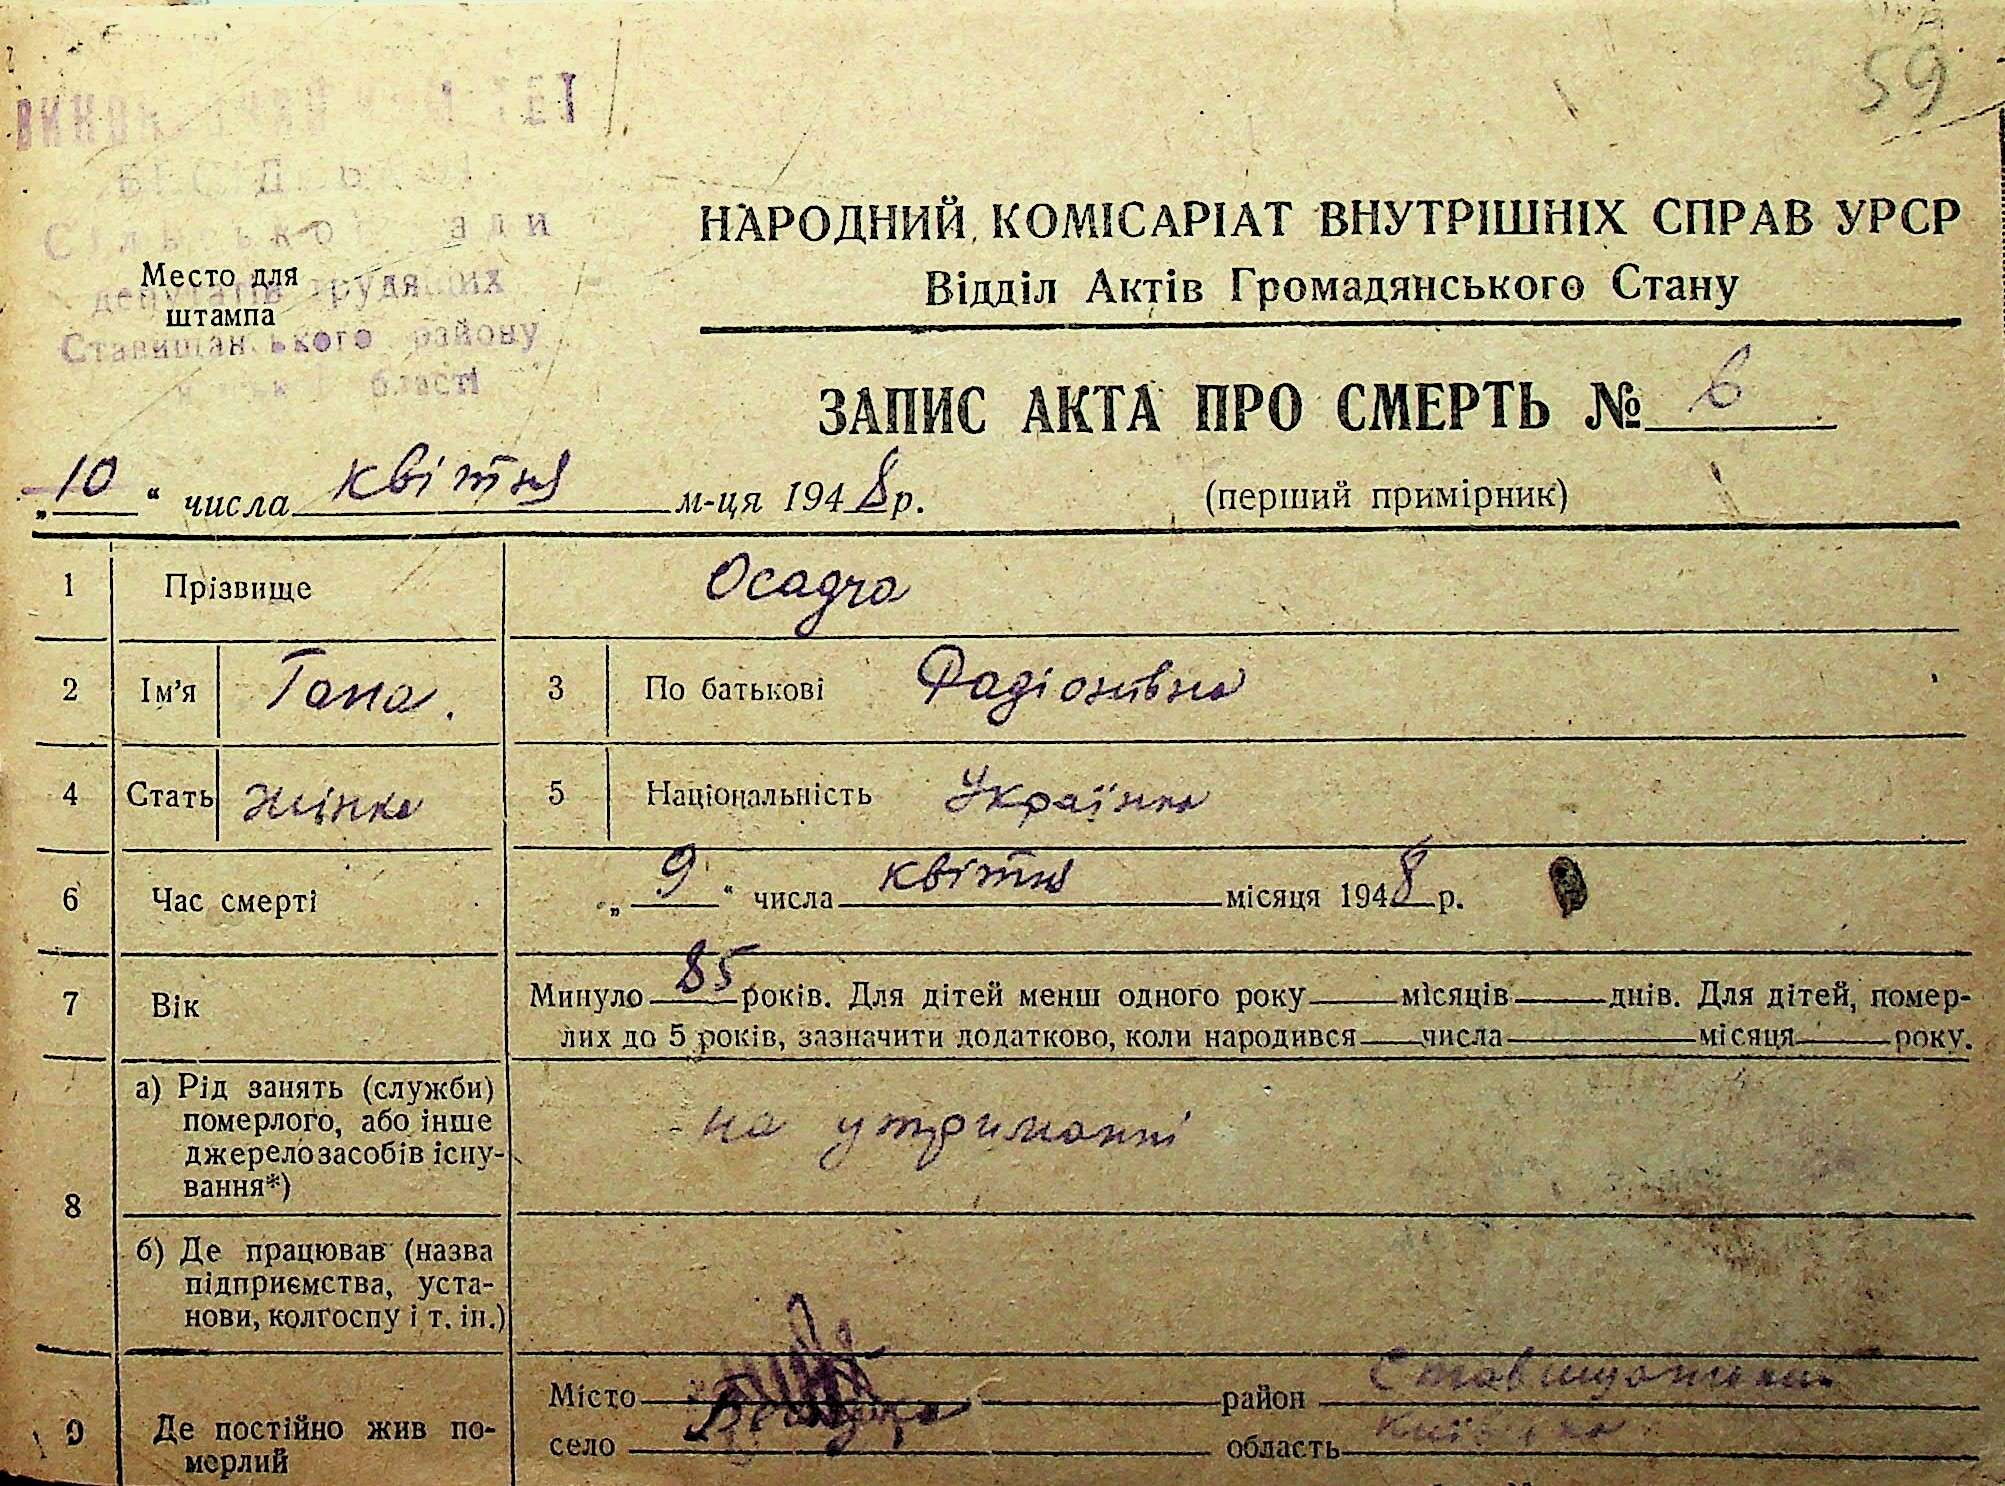 59
Сільської ради
депутатів трудящих
Ставищанського району
області
Место для
штампа
НАРОДНИЙ КОМІСАРІАТ ВНУТРІШНІХ СПРАВ УРСР
Відділ Актів Громадянського Стану
ЗАПИС АКТА ПРО СМЕРТЬ № 6
„10“ числа квітня м-ця 1948 р.
(перший примірник)
1 Прізвище Осадча
2 Ім’я Гана. 3 По батькові Радіонівна
4 Стать жінка 5 Національність Українка
6 Час смерті „9“ числа квітня місяця 1948 р.
7 Вік Минуло 85 років. Для дітей менш одного року місяців днів. Для дітей, помер-
лих до 5 років, зазначити додатково, коли народився числа місяця року.
8 а) Рід занять (служби)
померлого, або інше
джерело засобів існу-
вання*)
на утриманні
б) Де працював (назва
підприємства, уста-
нови, колгоспу і т. ін.)
9 Де постійно жив по-
мерлий
Місто район Ставищанський
село область Київська